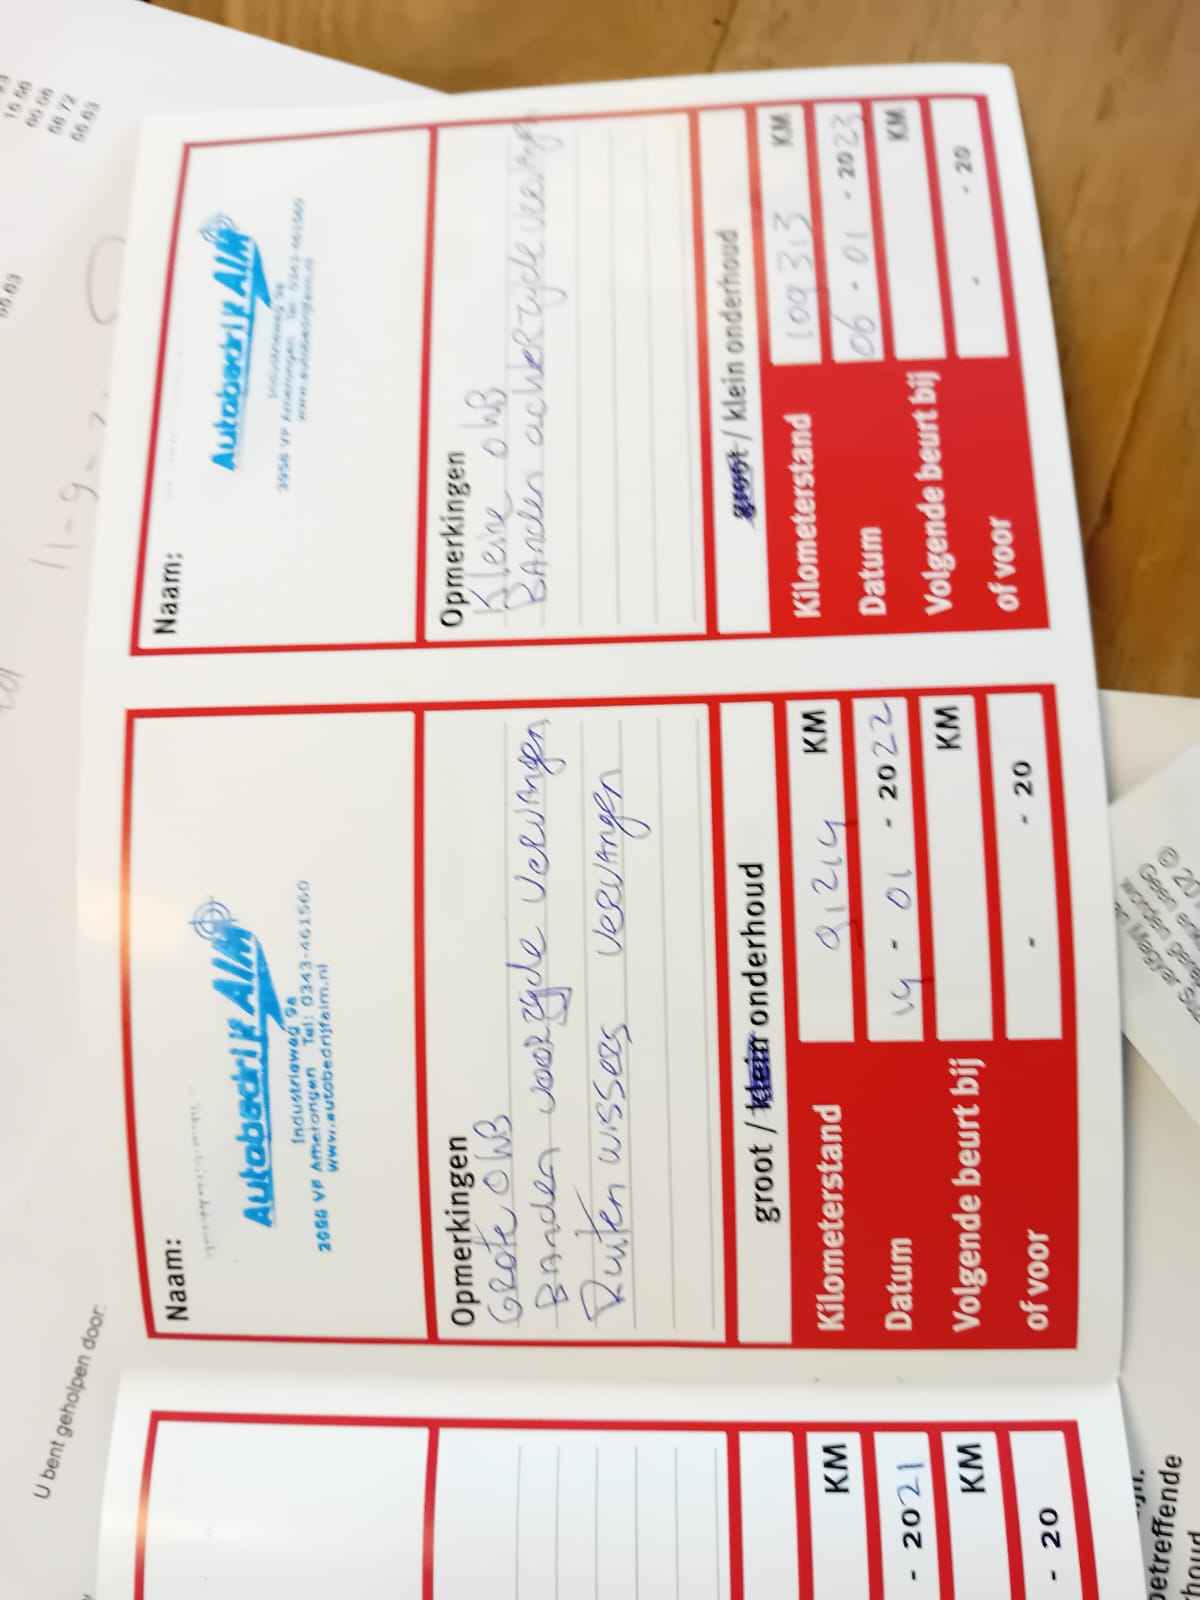 U bent geholpen door:
- 2021
KM
KM
- 20
Naam:
Autobedrijf AIM
Industrieweg 9a
3958 VP Amerongen Tel: 0343-461560
www.autobedrijfaim.nl
Opmerkingen
Grote OHB
Banden voorzijde vervangen
Ruiten wissers vervangen
groot / klein onderhoud
Kilometerstand 91214 KM
Datum 14 - 01 - 2022
Volgende beurt bij KM
of voor - - 20
Naam:
Autobedrijf AIM
Industrieweg 9a
3958 VP Amerongen Tel: 0343-461560
www.autobedrijfaim.nl
Opmerkingen
Kleine OHB
Banden achterzijde vervangen
groot / klein onderhoud
Kilometerstand 109313 KM
Datum 06 - 01 - 2023
Volgende beurt bij KM
of voor - - 20
betreffende
66.72
66.63